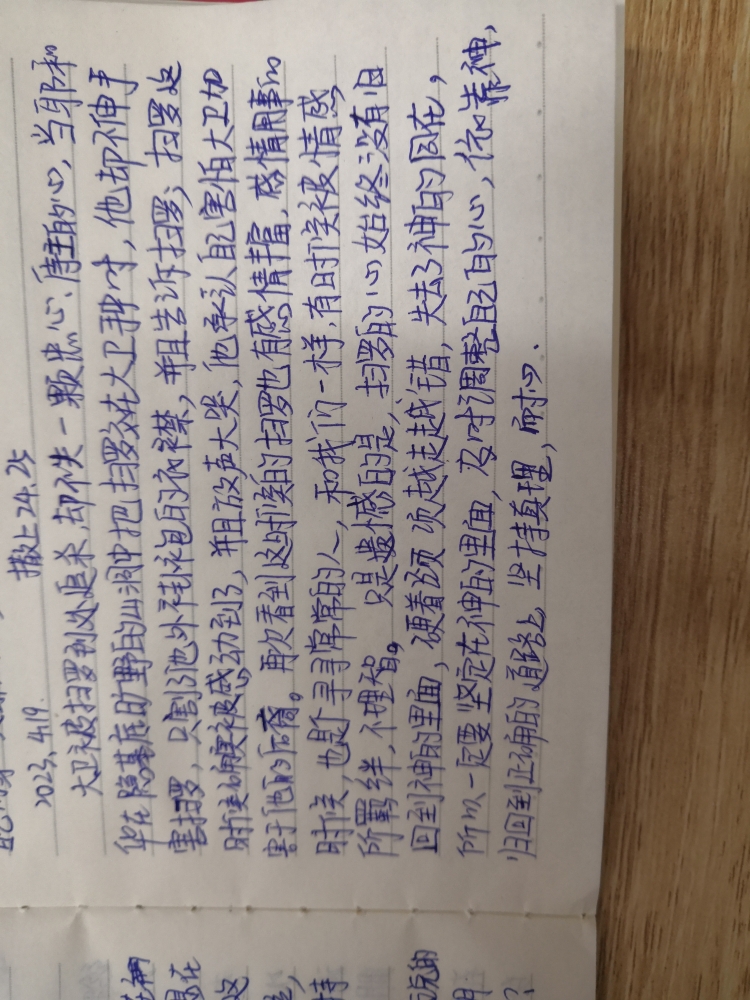 2023.4.19. 撒上24.25
大卫被扫罗到处追杀,却不失一颗忠心、唐主的心,当耶和
华在隐基底旷野的山洞中把扫罗交在大卫手时,他却不伸手
害扫罗,只割了他外袍的衣襟,并且告诉扫罗;扫罗这
时候确实被感动到了,并且放声大哭,他承认自己害怕大卫加
害于他的后裔。再次看到这时候的扫罗也有感情丰富,感情用事的
时候,也是个寻寻常常的人,和我们一样,有时候被情感
所羁绊,不理智。只是遗憾的是,扫罗的心始终没有归
回到神的里面,硬着颈项越走越错,失去了神的同在,
所以一定要坚定在神的里面,及时调整自己的心,依靠神,
归回到正确的道路上,坚持真理,耐心.